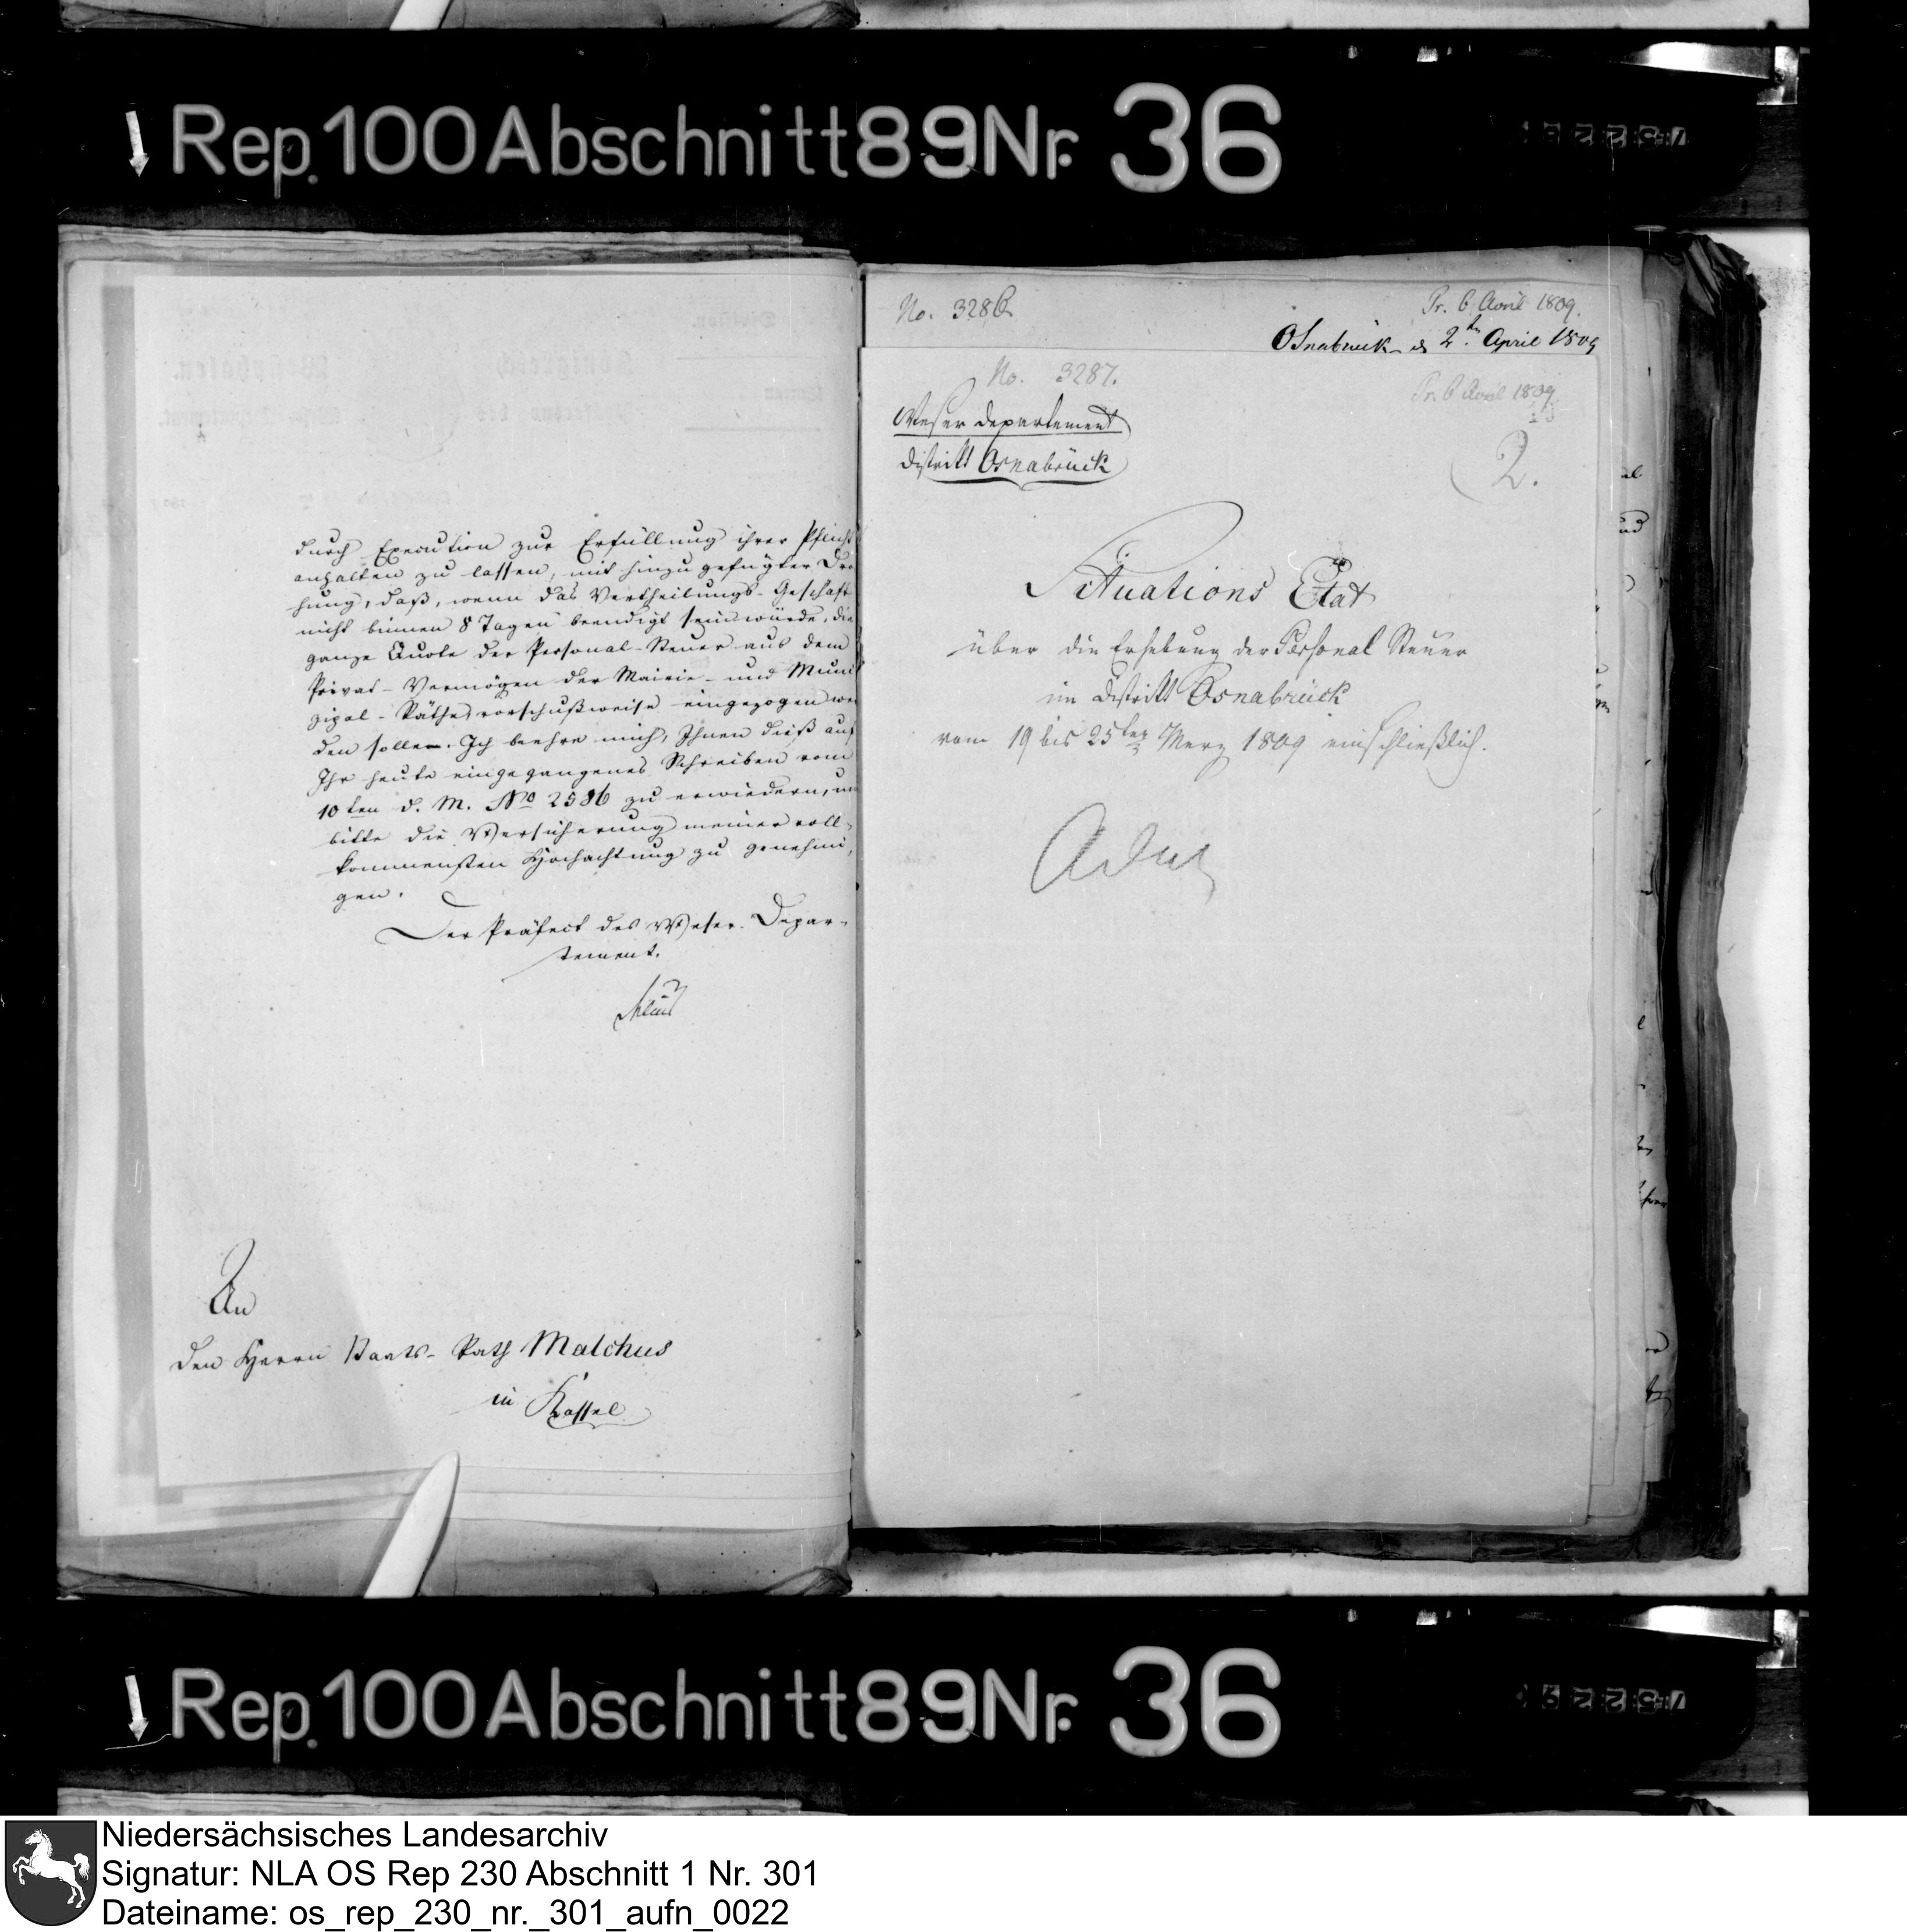 Rep. 100 Abschnitt 89 Nr. 36
durch Execution zur Erfüllung ihrer Pflicht
anhalten zu lassen, mit hinzugefügter Dro
hung, daß, wenn das Vertheilungs-Geschäft
nicht binnen 8 Tagen beendigt sein würde, die
ganze Quote der Personal-Steuer aus dem
Privat-Vermögen der Mairie- und Muni
zipal-Räthe vorschußweise eingezogen wer
den sollen. Ich beehre mich, Ihnen dieß auf
Ihr heute eingegangenes Schreiben vom
10ten d. M. No 2586 zu erwiedern, und
bitte die Versicherung meiner voll-
kommensten Hochachtung zu genehmi,
gen.
Der Präfect des Weser-Depar-
tement.
An
den Herrn Staats-Rath Malchus
in Kassel
No. 3286
Pr. 6 April 1809.
Osnabrück d 2ten April 1809
No. 3287.
Pr. 6 April 1809
Weser Departement
District Osnabrück
2.
Situations Etat
über die Erhebung der Personal Steuer
im District Osnabrück
vom 19 bis 25ten Merz 1809 einschließlich.
Rep. 100 Abschnitt 89 Nr. 36
Niedersächsisches Landesarchiv
Signatur: NLA OS Rep 230 Abschnitt 1 Nr. 301
Dateiname: os_rep_230_nr._301_aufn_0022